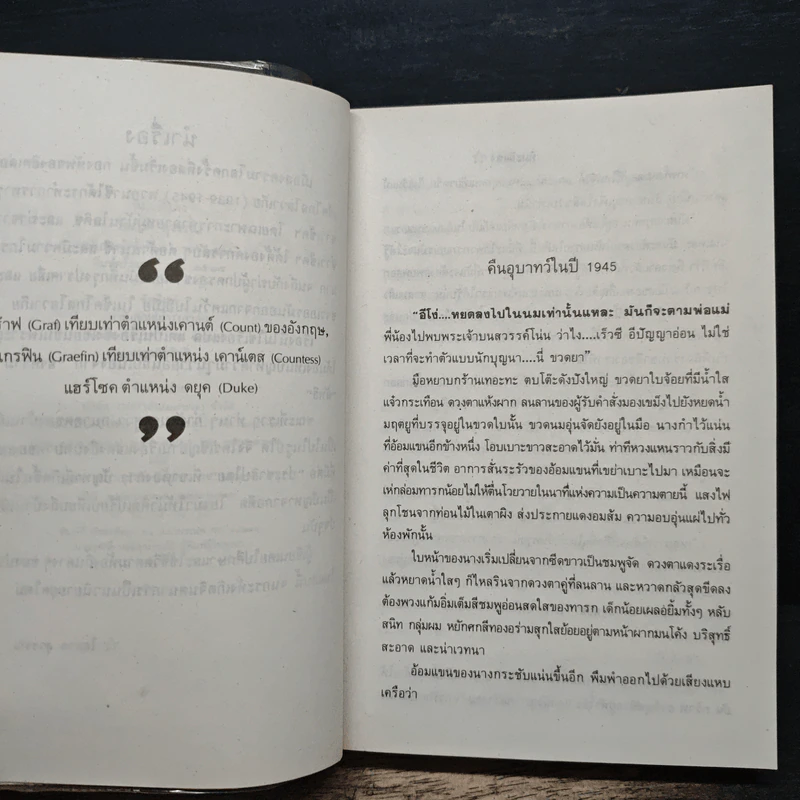 “
ร้าฟ (Graf) เทียบเท่าตำแหน่งเคานต์ (Count) ของอังกฤษ,
เกรฟิน (Graefin) เทียบเท่าตำแหน่ง เคาน์เตส (Countess)
แฮร์โซค ตำแหน่ง ดยุค (Duke)
”
คืนอุบาทว์ในปี 1945
“อีโง่....หยดลงไปในนมเท่านั้นแหละ มันก็จะตามพ่อแม่
พี่น้องไปพบพระเจ้าบนสวรรค์โน่น ว่าไง....เร็วซี อีปัญญาอ่อน ไม่ใช่
เวลาที่จะทำตัวแบบนักบุญนา....นี่ ขวดยา”
มือหยาบกร้านเทอะทะ ตบโต๊ะดังปังใหญ่ ขวดยาใบจ้อยที่มีน้ำใส
แจ๋วกระเทือน ดวงตาแห้งผาก ลนลานของผู้รับคำสั่งมองเขม็งไปยังหยดน้ำ
มฤตยูที่บรรจุอยู่ในขวดใบนั้น ขวดนมอุ่นจัดยังอยู่ในมือ นางกำไว้แน่น
ที่อ้อมแขนอีกข้างหนึ่ง โอบเบาะขาวสะอาดไว้มั่น ท่าทีหวงแหนราวกับสิ่งมี
ค่าที่สุดในชีวิต อาการสั่นระรัวของอ้อมแขนที่เขย่าเบาะไปมา เหมือนจะ
เห่กล่อมทารกน้อยไม่ให้ตื่นโวยวายในนาทีแห่งความเป็นความตายนี้ แสงไฟ
ลุกโชนจากท่อนไม้ในเตาผิง ส่งประกายแดงอมส้ม ความอบอุ่นแผ่ไปทั่ว
ห้องพักนั้น
ใบหน้าของนางเริ่มเปลี่ยนจากซีดขาวเป็นชมพูจัด ดวงตาแดงระเรื่อ
แล้วหยาดน้ำใสๆ ก็ไหลรินจากดวงตาคู่ที่ลนลาน และหวาดกลัวสุดขีดลง
ต้องพวงแก้มอิ่มเต็มสีชมพูอ่อนสดใสของทารก เด็กน้อยเผลอยิ้มทั้งๆ หลับ
สนิท กลุ่มผม หยักศกสีทองอร่ามสุกใสย้อยอยู่ตามหน้าผากมนโค้ง บริสุทธิ์
สะอาด และน่าเวทนา
อ้อมแขนของนางกระชับแน่นขึ้นอีก พึมพำออกไปด้วยเสียงแหบ
เครือว่า